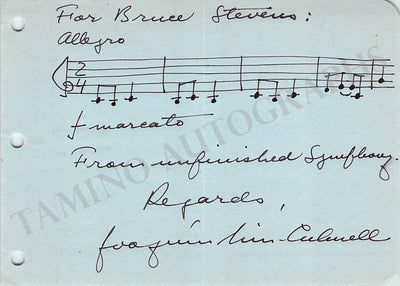 For Bruce Stevens:
Allegro
2
4
f marcato
From unfinished Symphony.
Regards,
Joaquín Nin-Culmell
TAMINO AUTOGRAPHS